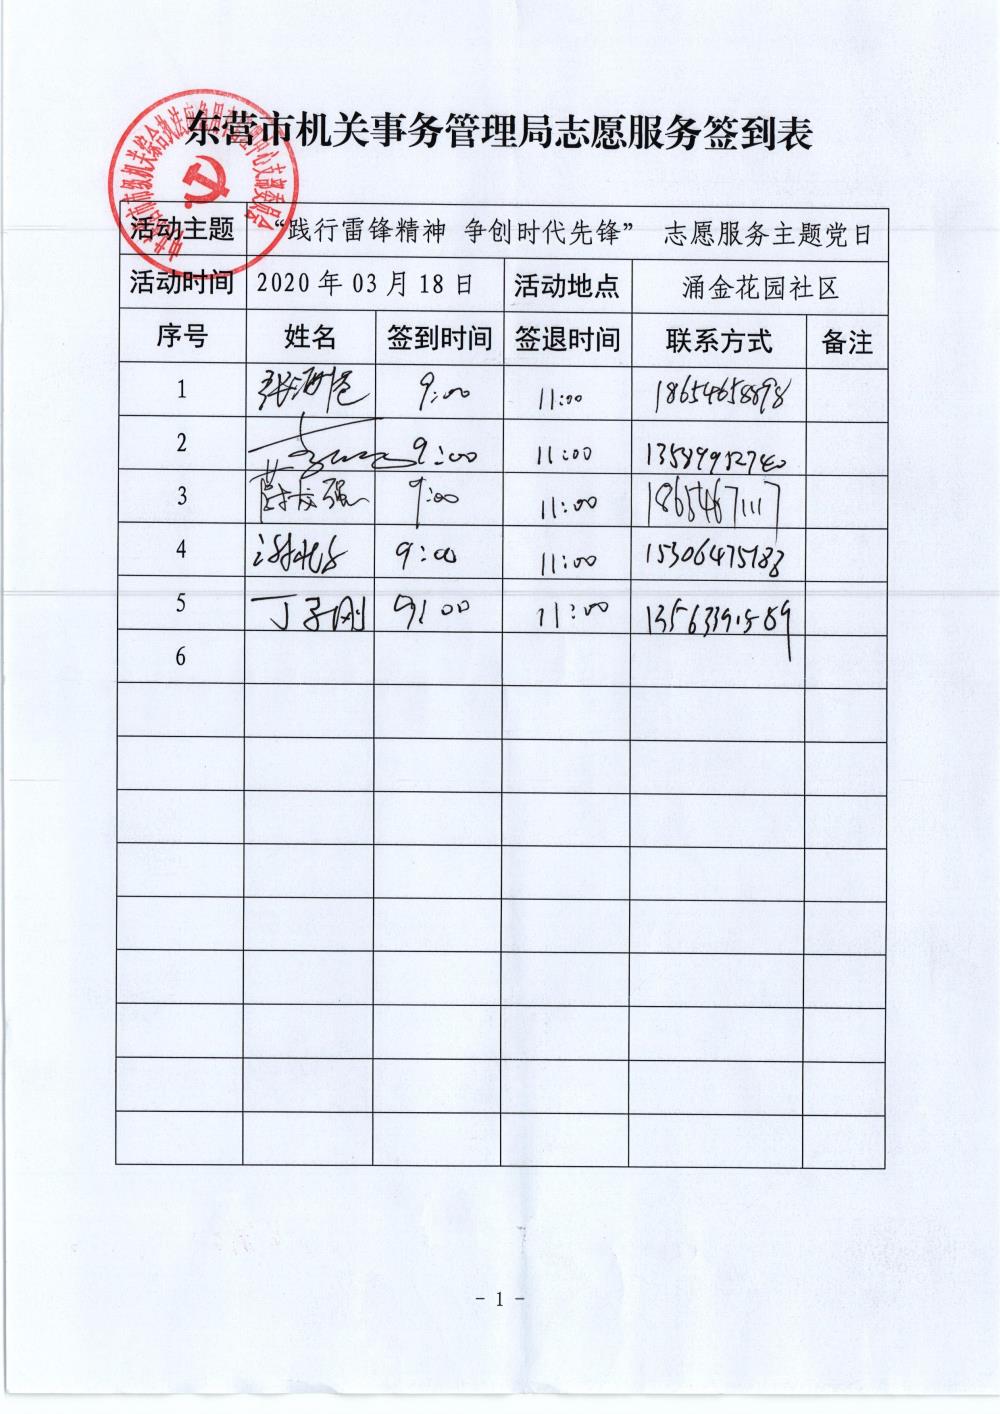 东营市机关事务管理局志愿服务签到表
活动主题 “践行雷锋精神 争创时代先锋” 志愿服务主题党日
活动时间 2020 年 03 月 18 日 活动地点 涌金花园社区
序号 姓名 签到时间 签退时间 联系方式 备注
1 9:00 11:00 18654658898
2 9:00 11:00 13589952740
3 9:00 11:00 18654671117
4 9:00 11:00 15306475188
5 丁子刚 9:00 11:00
6
- 1 -